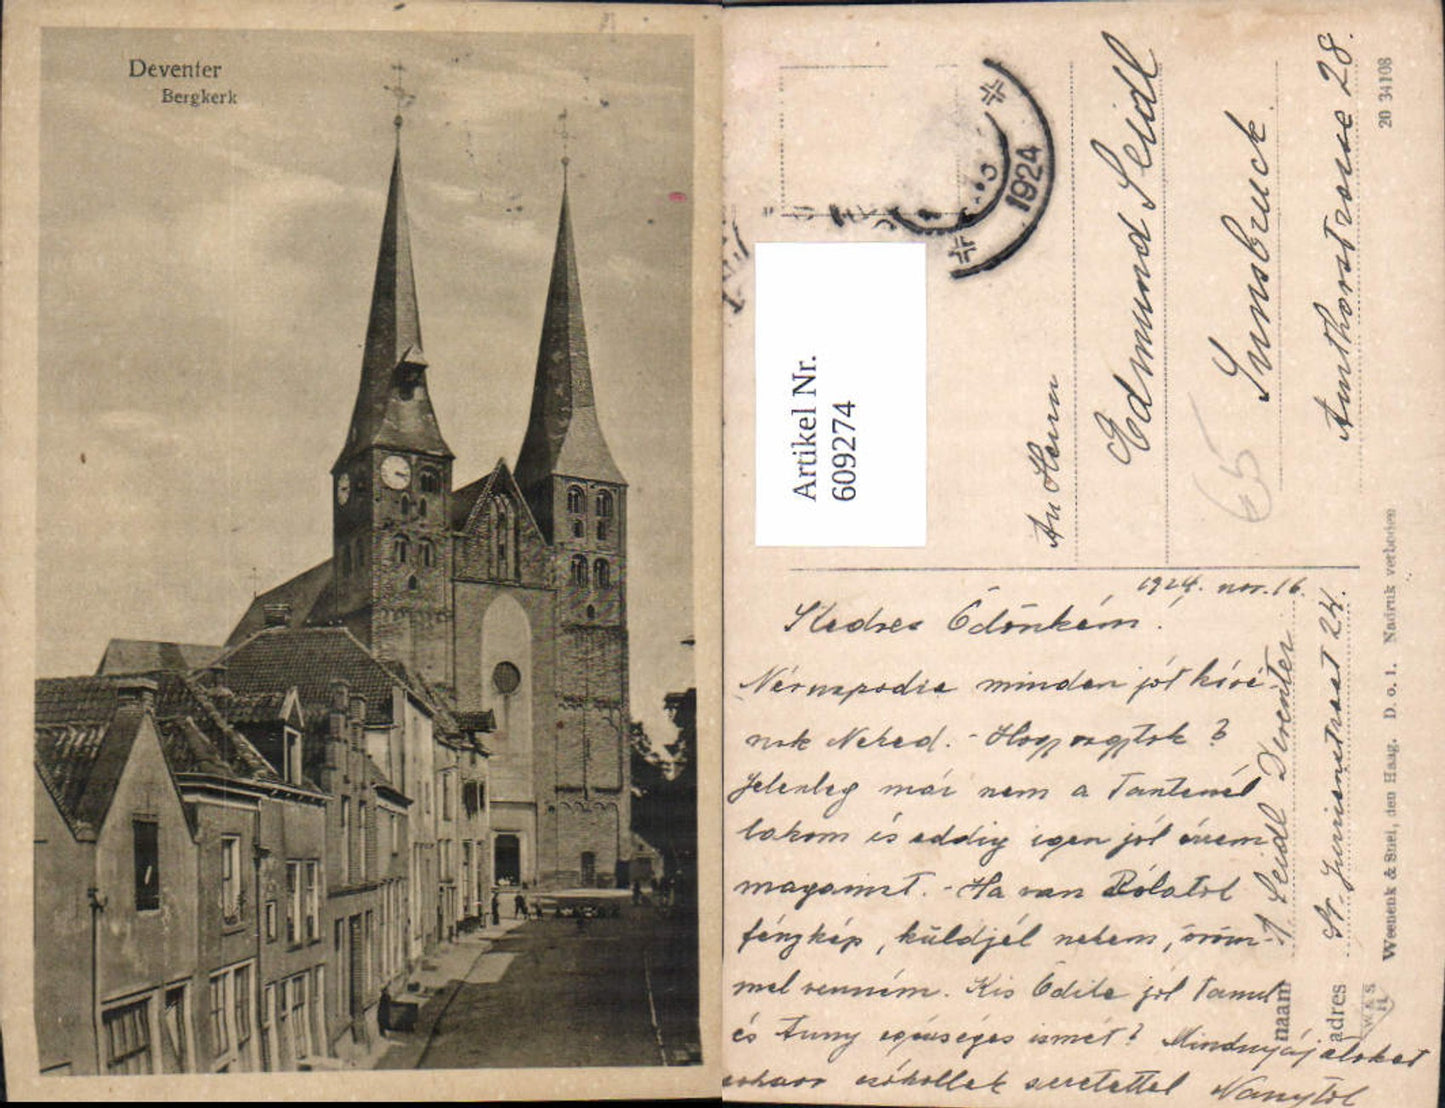 Deventer
Bergkerk
1924
Artikel Nr.
609274
An Herrn
Edmund Seidl
Innsbruck
Amthorstrasse 28.
65
20 34108
1924. nov. 16.
Kedves Ödönkém!
minden jót kívá-
nok Neked. - Hogy vagytok?
Jelenleg már nem a Tantenál
lakom és eddig igen jól érzem
magamat. - Ha van Bélától
fénykép, küldjél nekem, öröm-
mel venném. Kis Ödike jól tanul
és Anny egészséges ismét? Mindnyájatokat
csókollak szeretettel
naam J. Seidl Deventer
adres St. Jurrienstraat 24.
W & S
H
Weenenk & Snel, den Haag. D. o. 1. Nadruk verboden